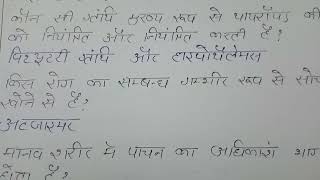 कौन सी ग्रंथि मुख्य रूप से थायरॉयड की
को नियंत्रित और नियंत्रित करती है?
पिट्यूटरी ग्रंथि और हाइपोथैलेमस
किस रोग का सम्बन्ध गम्भीर रूप से सोच
खोने से है?
अल्जाइमर
मानव शरीर में पाचन का अधिकांश भाग
होता है?